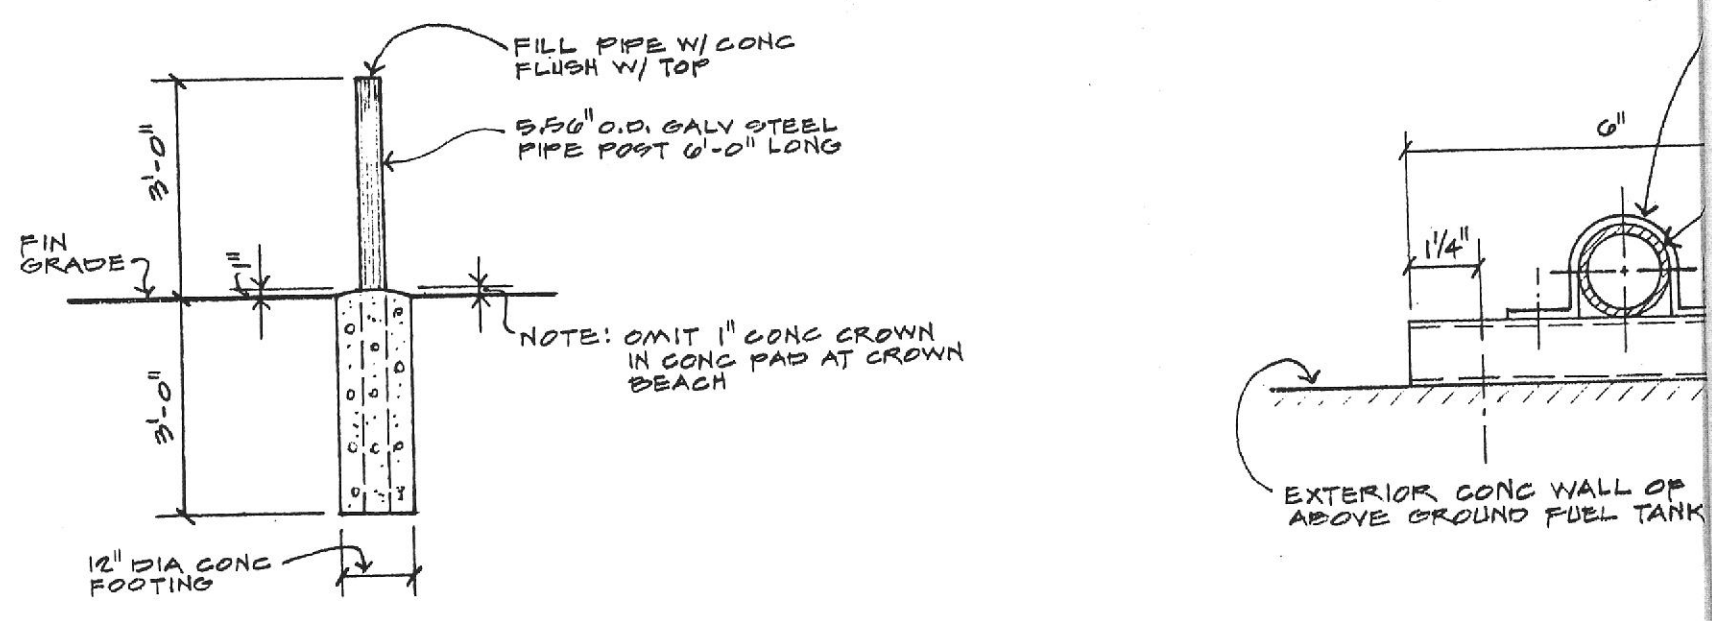 FILL PIPE W/ CONC
FLUSH W/ TOP
5.56" O.D. GALV STEEL
PIPE POST 6'-0" LONG
3'-0"
FIN
GRADE
1"
NOTE: OMIT 1" CONC CROWN
IN CONC PAD AT CROWN
BEACH
3'-0"
12" DIA CONC
FOOTING
6"
1 1/4"
EXTERIOR CONC WALL OF
ABOVE GROUND FUEL TANK